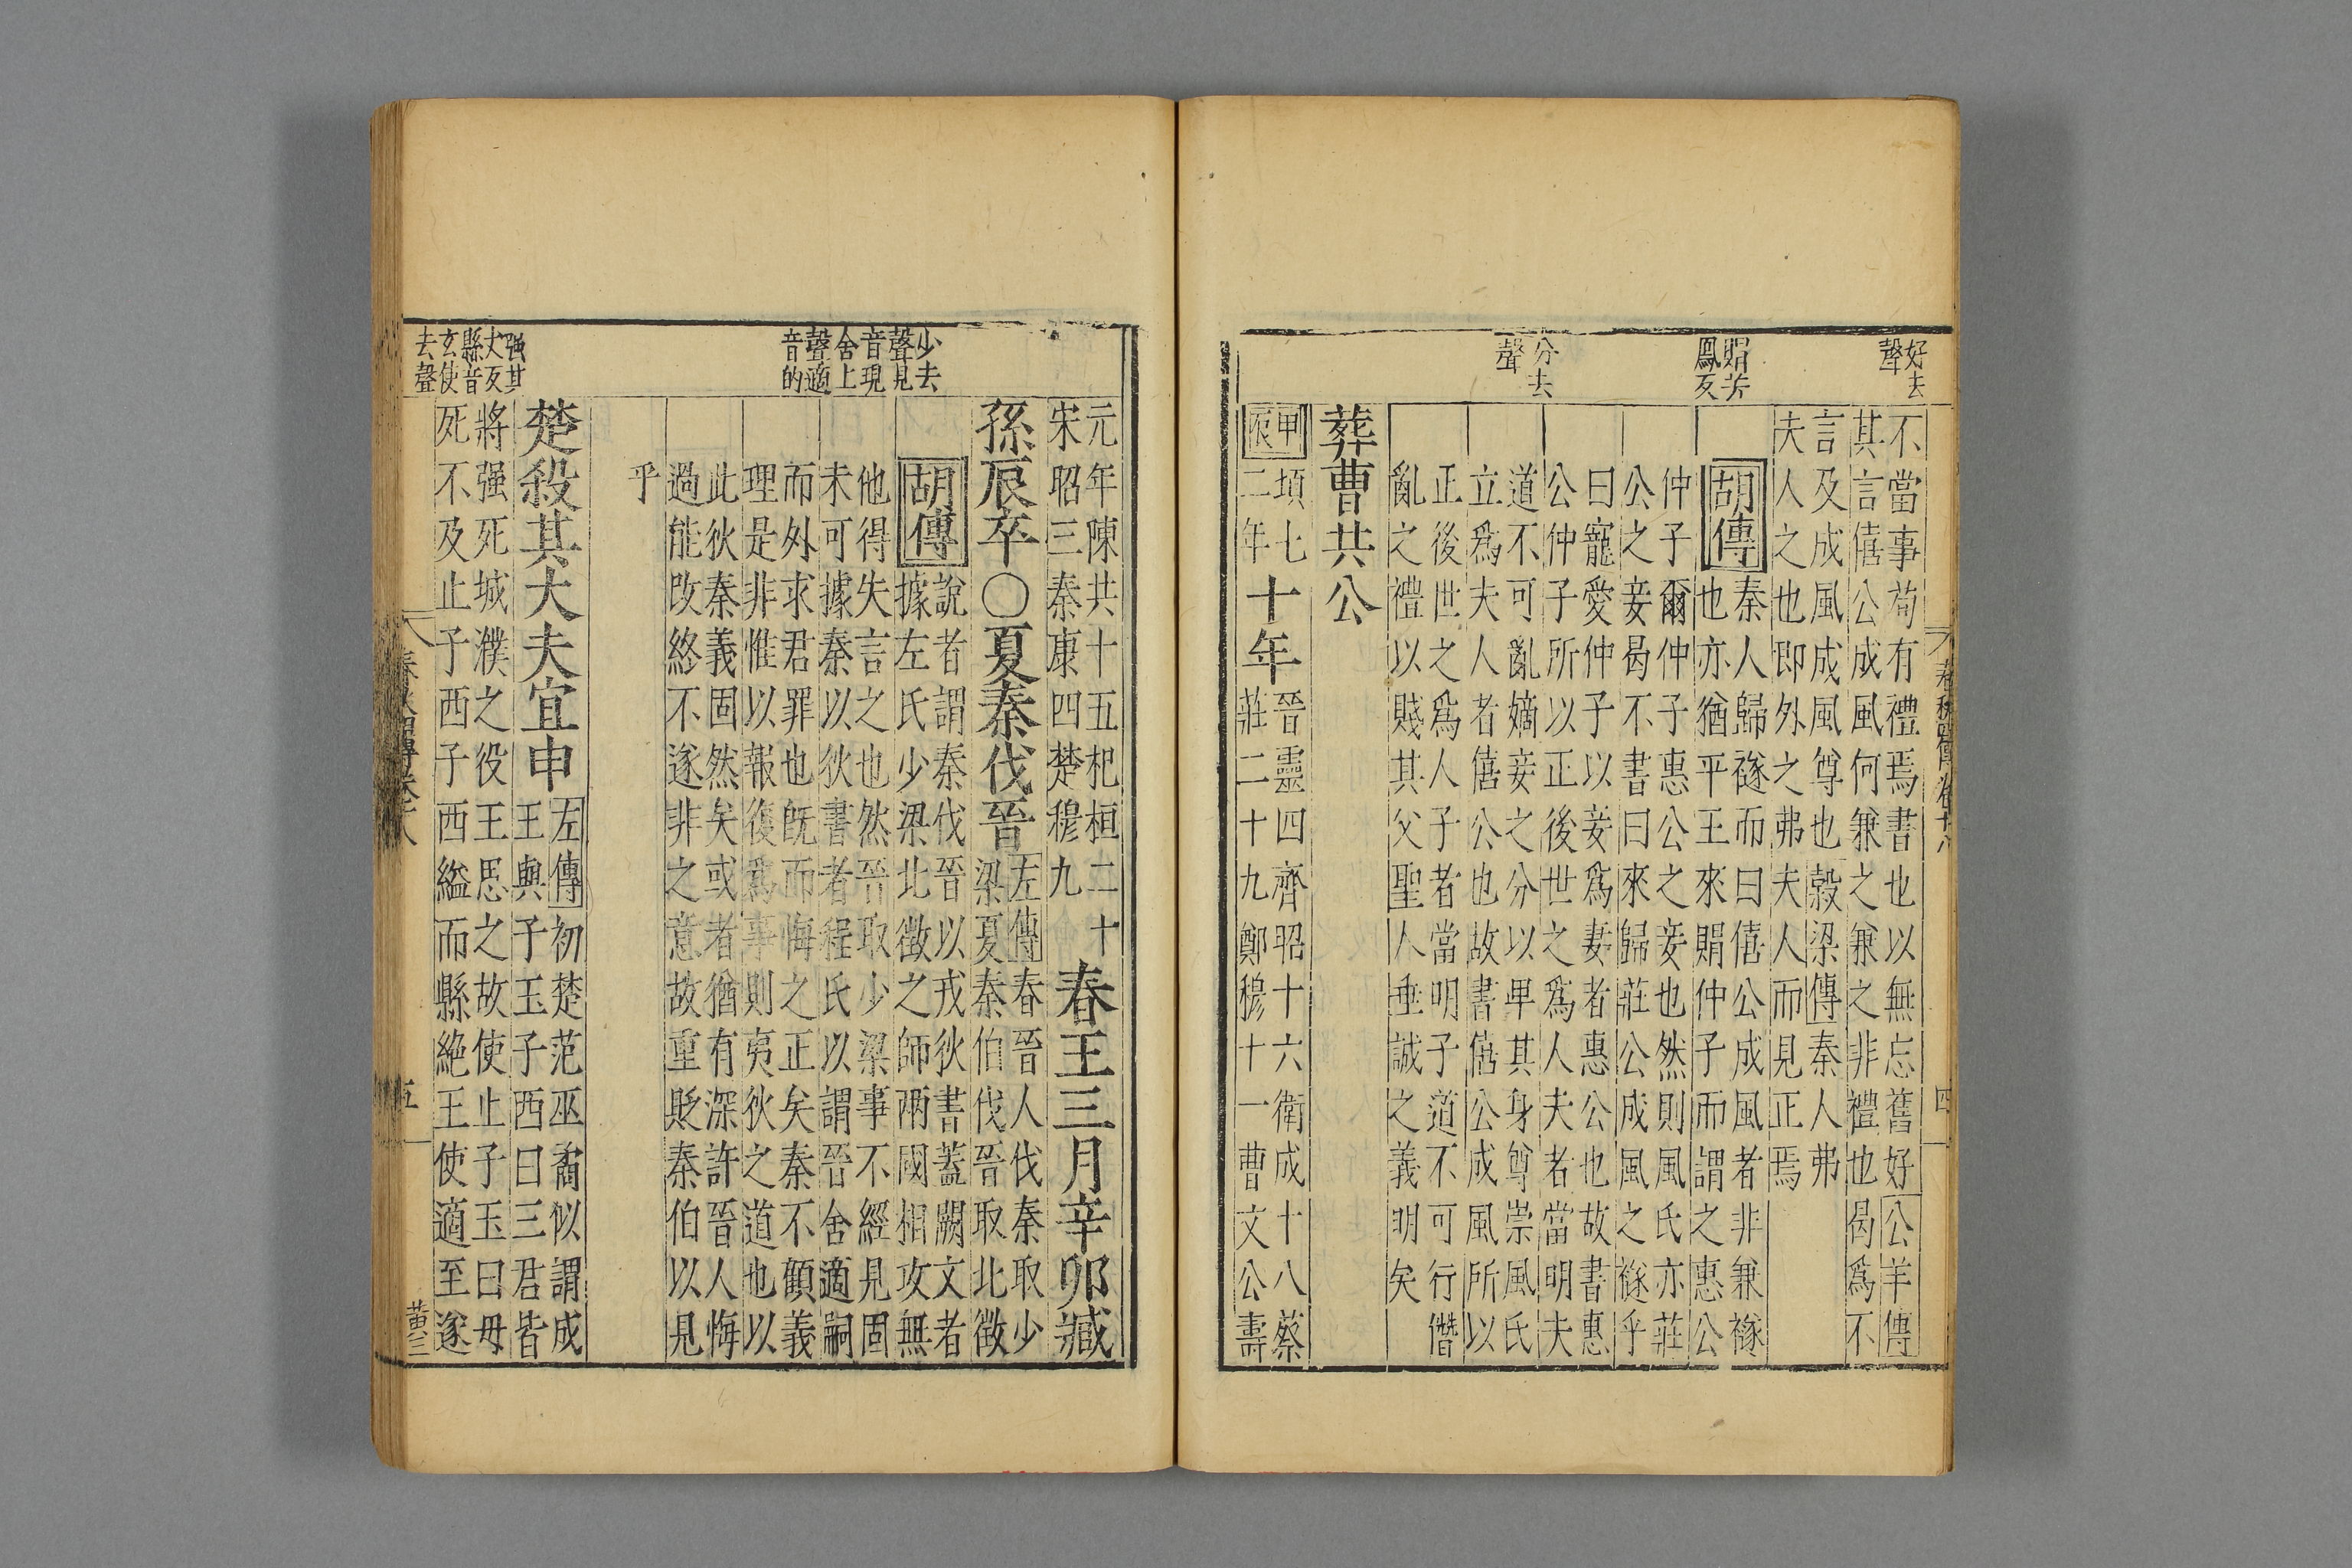 好去
聲
賵芳
鳳反
分去
聲
不當事苟有禮焉書也以無忘舊好公羊傳
其言僖公成風何兼之兼之非禮也曷爲不
言及成風成風尊也穀梁傳秦人弗
夫人之也即外之弗夫人而見正焉
胡傳
秦人歸襚而曰僖公成風者非兼襚
也亦猶平王來賵仲子而謂之惠公
仲子爾仲子惠公之妾也然則風氏亦莊
公之妾曷不書曰來歸莊公成風之襚乎
曰寵愛仲子以妾爲妻者惠公也故書惠
公仲子所以正後世之爲人夫者當明夫
道不可亂嫡妾之分以卑其身尊崇風氏
立爲夫人者僖公也故書僖公成風所以
正後世之爲人子者當明子道不可行僭
亂之禮以賤其父聖人垂誡之義明矣
葬曹共公
甲
辰
頃七
二年
十年
晉靈四齊昭十六衛成十八蔡
莊二十九鄭穆十一曹文公壽
四
元年陳共十五杞桓二十
宋昭三秦康四楚穆九
春王三月辛卯臧
孫辰卒○夏秦伐晉
左傳春晉人伐秦取少
梁夏秦伯伐晉取北徵
少去
聲見
音現
舍上
聲適
音的
胡傳
說者謂秦伐晉以戎狄書蓋闕文者
據左氏少梁北徵之師兩國相攻無
他得失言之也然晉取少梁事不經見固
未可據秦以狄書者程氏以謂晉舍適嗣
而外求君罪也既而悔之正矣秦不顧義
理是非惟以報復爲事則夷狄之道也以
此狄秦義固然矣或者猶有深許晉人悔
過能改終不遂非之意故重貶秦伯以見
乎
強其
丈反
縣音
玄使
去聲
楚殺其大夫宜申
左傳初楚范巫矞似謂成
王與子玉子西曰三君皆
將强死城濮之役王思之故使止子玉曰毋
死不及止子西子西縊而縣絶王使適至遂
五